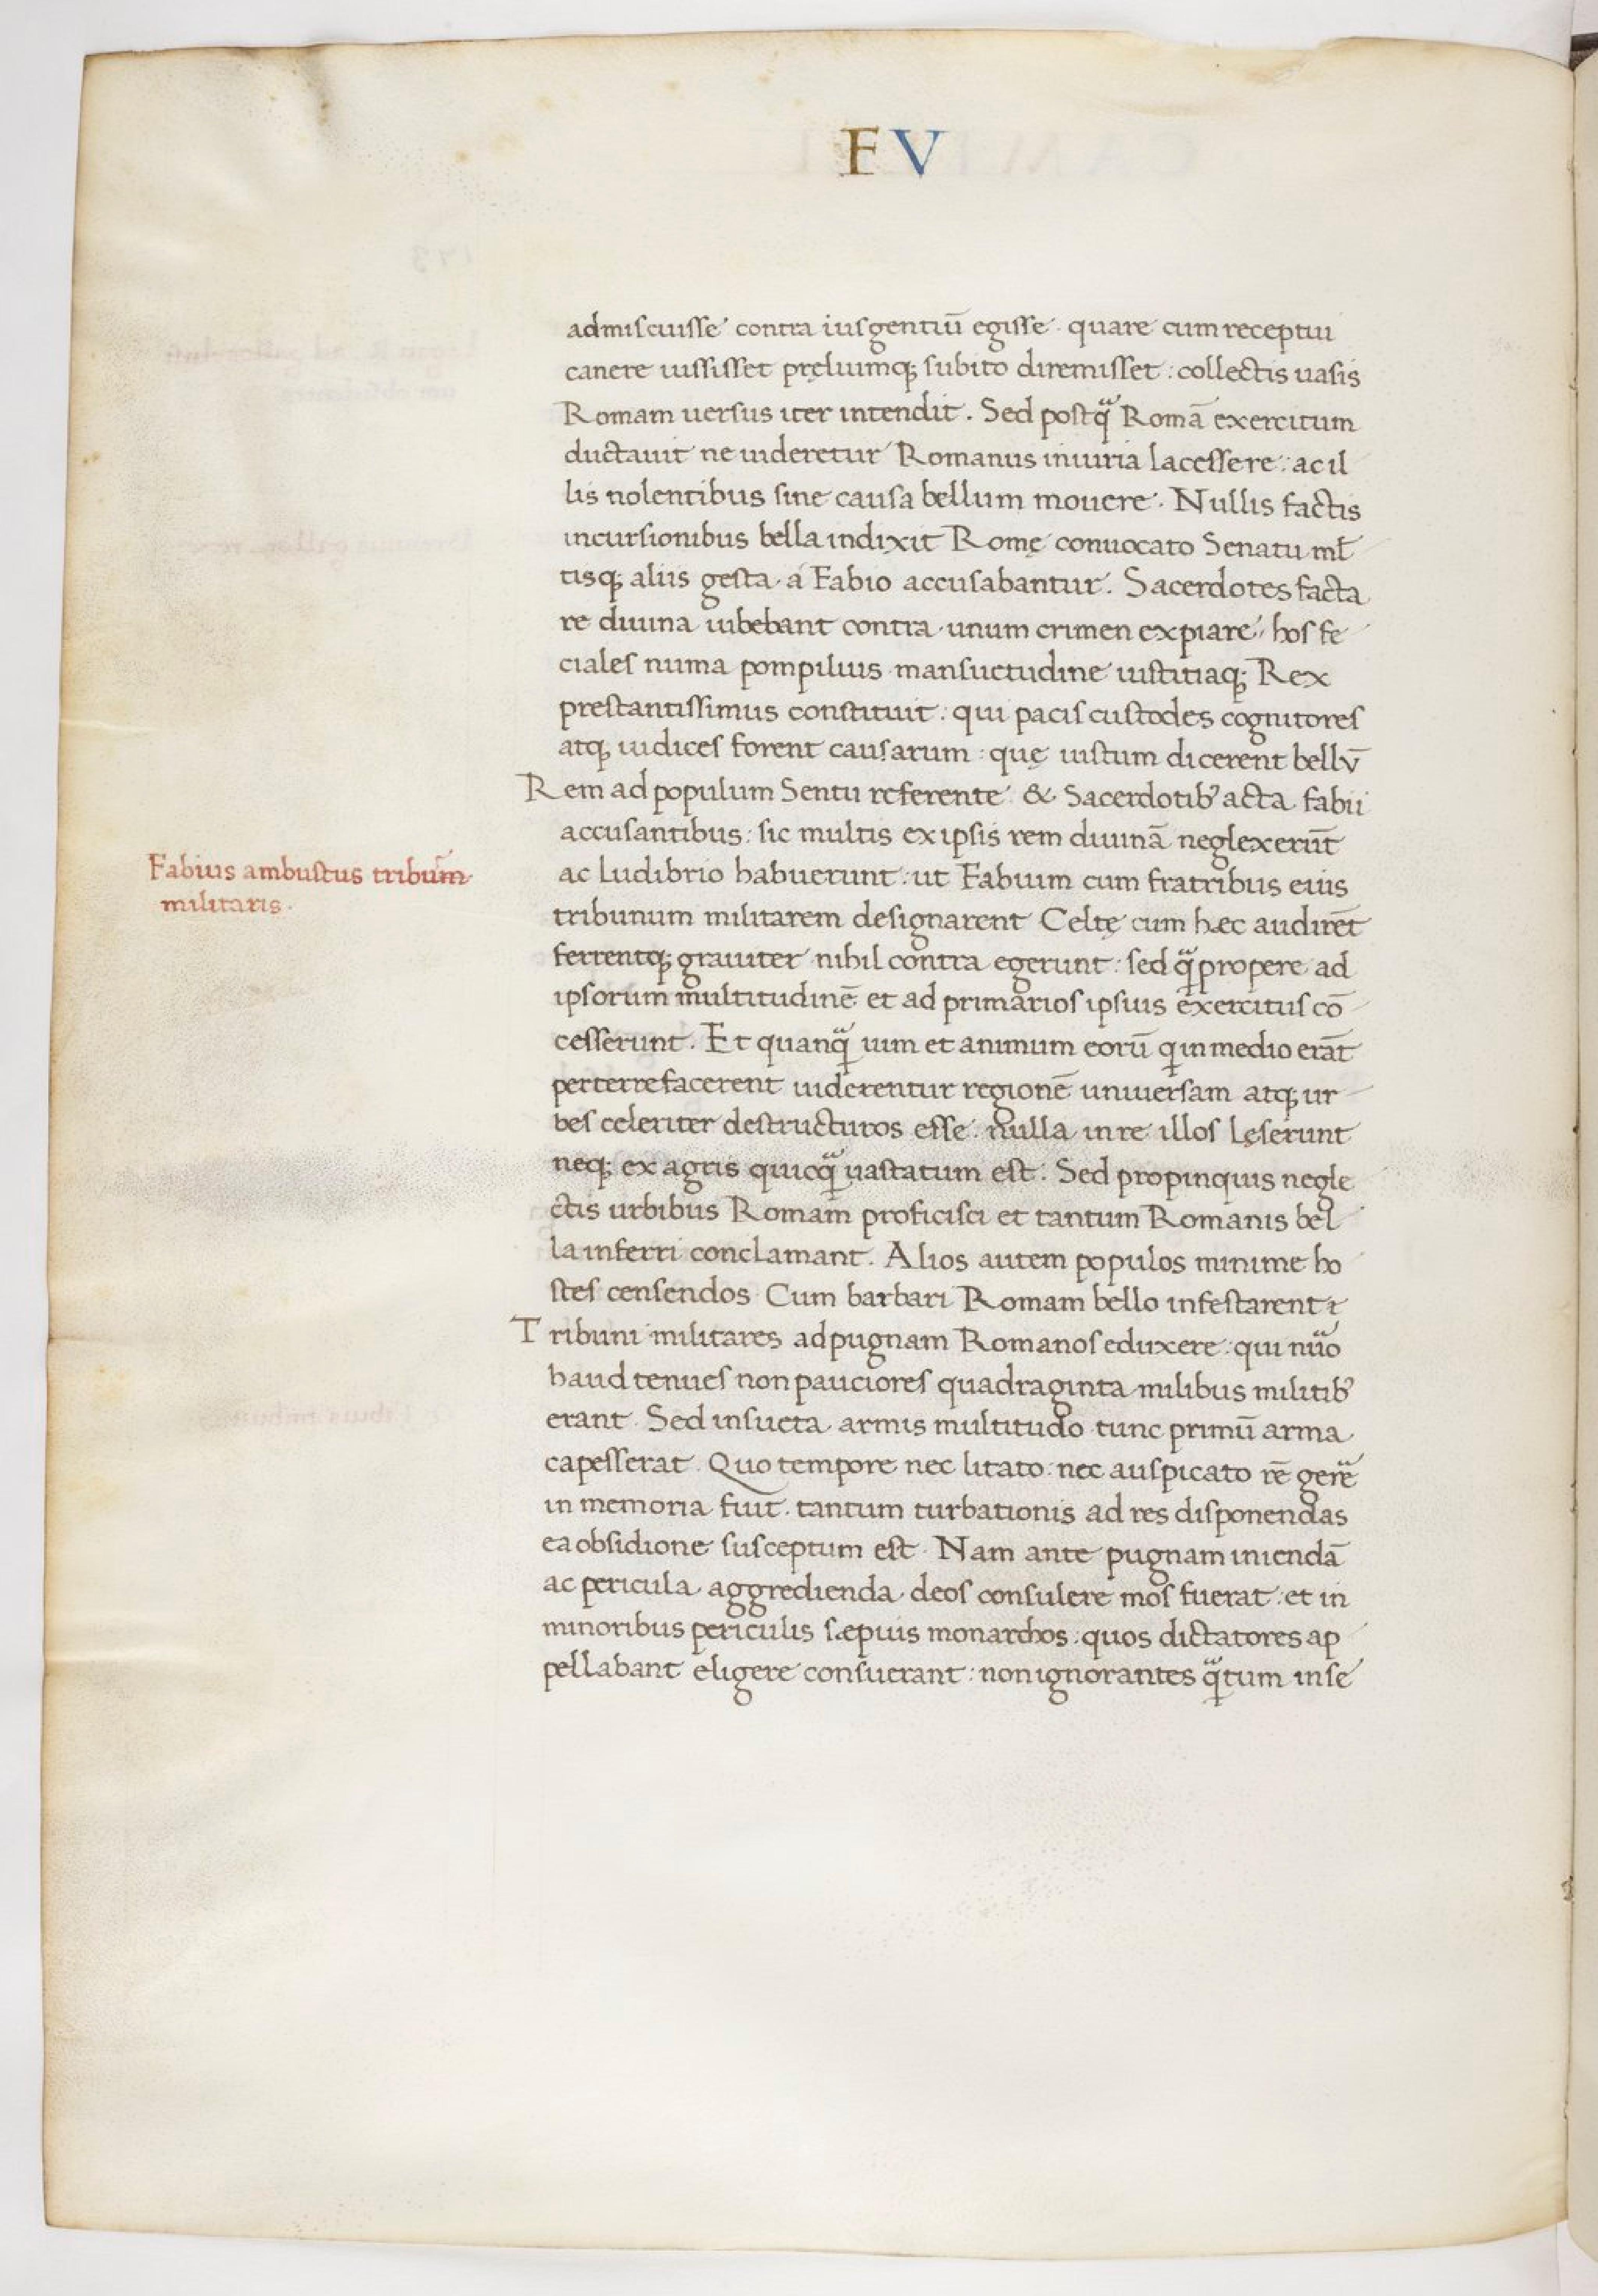 FV
admiscuisse contra ius gentiū egisse. quare cum receptui
canere iussisset pręliumq; subito diremisset: collectis uasis
Romam uersus iter intendit. Sed postq̄ Romā exercitum
ductauit ne uideretur Romanus iniuria lacessere: ac il
lis nolentibus sine causa bellum mouere. Nullis factis
incursionibus bella indixit Romę conuocato Senatu ml̄
tisq; aliis gesta a Fabio accusabantur. Sacerdotes facta
re diuina iubebant contra unum crimen expiare, hos fe
ciales numa pompilius mansuetudine iustitiaq; Rex
prestantissimus constituit: qui pacis custodes cognitores
atq; iudices forent causarum: quę iustum dicerent bellv̄
Rem ad populum Sentu referente & Sacerdotib' acta fabii
accusantibus: sic multis ex ipsis rem diuinā neglexerūt
Fabius ambustus tribum̄
militaris.
ac ludibrio habuerunt: ut Fabium cum fratribus eius
tribunum militarem designarent Celtę cum hæc audirēt
ferrentq; grauiter nihil contra egerunt: sed q̄propere ad
ipsorum multitudinē et ad primarios ipsius exercitus cō
cesserunt. Et quanq̄ uim et animum eorū q in medio erāt
perterrefacerent uiderentur regionē uniuersam atq; ur
bes celeriter destructuros esse: nulla in re illos lęserunt
neq; ex agris quicq̄ uastatum est: Sed propinquis negle
ctis urbibus Romam proficisci et tantum Romanis bel
la inferri conclamant. Alios autem populos minime ho
stes censendos Cum barbari Romam bello infestarent
Tribuni militares ad pugnam Romanos eduxere: qui nūo
haud tenues non pauciores quadraginta milibus militib'
erant. Sed insueta armis multitudo tunc primū arma
capesserat. Quo tempore nec litato: nec auspicato rē gerē
in memoria fuit. tantum turbationis ad res disponendas
ea obsidione susceptum est. Nam ante pugnam iniendā
ac pericula aggredienda deos consulere mos fuerat: et in
minoribus periculis sæpius monarchos: quos dictatores ap
pellabant eligere consuerant: non ignorantes q̄tum in se